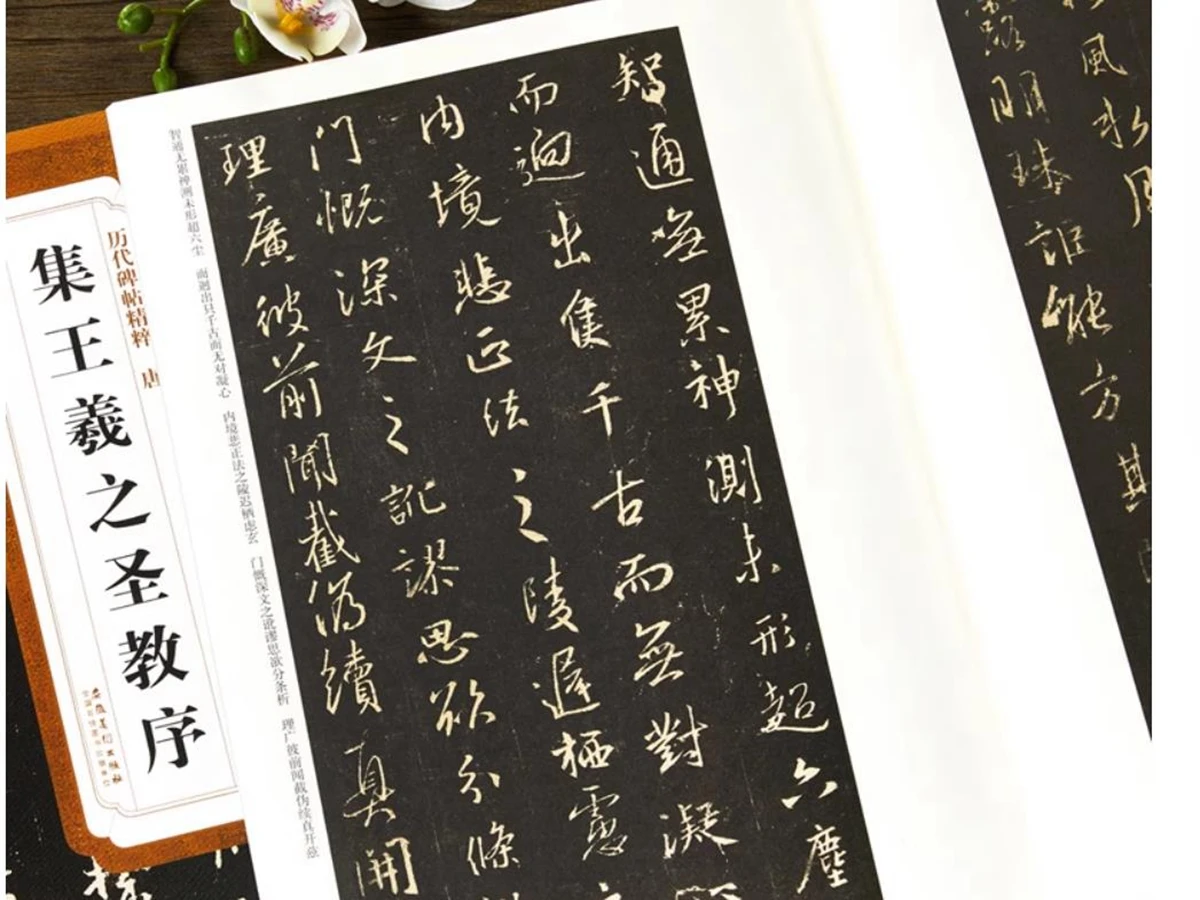 風水月
露明珠詎能方其
智通無累神測未形超六塵
而迥出隻千古而無對凝
內境悲正法之陵遲栖慮
門慨深文之訛謬思欲分條
理廣彼前聞截偽續真開
智通无累神测未形超六尘 而迥出只千古而无对凝心 内境悲正法之陵迟栖虑玄 门慨深文之讹谬思欲分条析 理广彼前闻截伪续真开兹
历代碑帖精粹 唐
集王羲之圣教序
安徽美术出版社